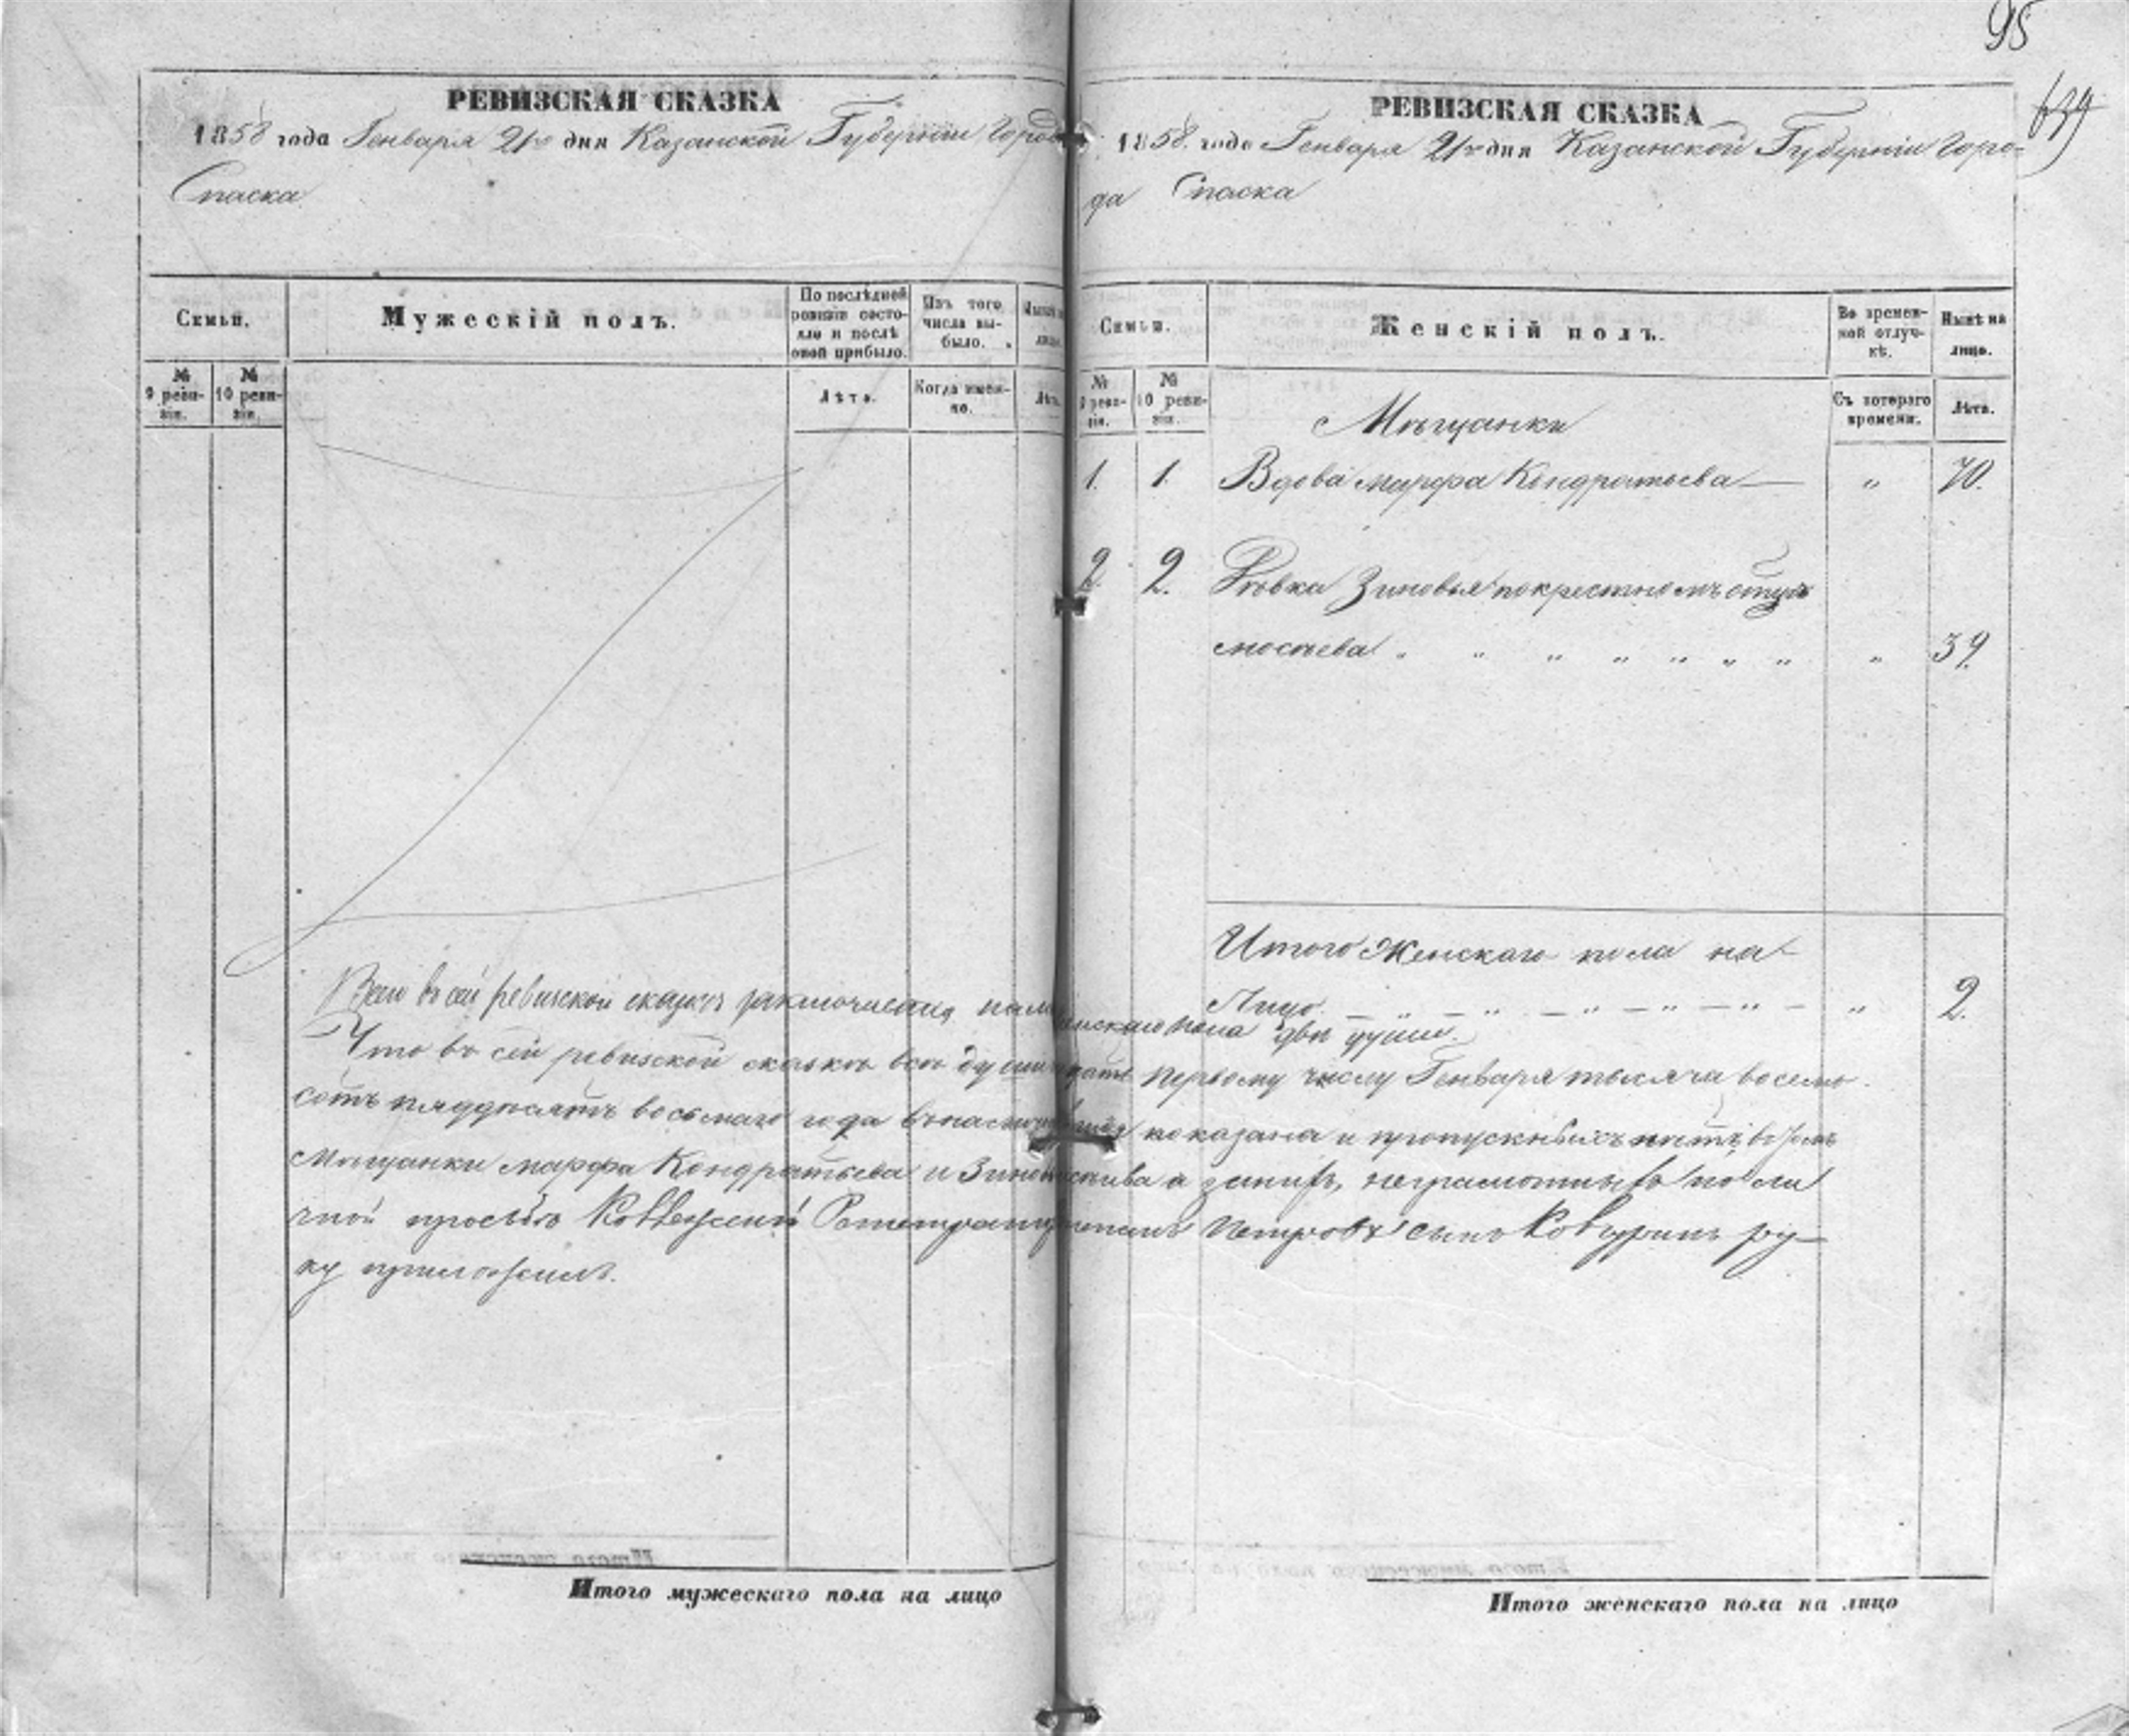 95
639
РЕВИЗСКАЯ СКАЗКА
1858 года Генваря 21го дня Казанской Губерніи Города
Спаска
Семьи.
Мужескій полъ.
По послѣдней ревизіи состояло и послѣ оной прибыло.
Изъ того числа выбыло.
№ 9 ревизіи.
№ 10 ревизіи.
Лѣта.
Когда именно.
Лѣта.
РЕВИЗСКАЯ СКАЗКА
1858 года Генваря 21го дня Казанской Губерніи Горо-
да Спаска
Семьи.
Женскій полъ.
Во временной отлучкѣ.
Нынѣ на лицо.
№ 9 ревизіи.
№ 10 ревизіи.
Съ котораго времени.
Лѣта.
Мѣщанки
1. 1. Вдова Марфа Кондратьева — „ 70.
2. 2. Дѣвка Зиновья по крестномъ отцѣ
„ „ „ „ „ „ „ „ 39.
Итого Женскаго пола на
Лицо „ „ „ „ „ 2.
Всего въ сей ревизской сказкѣ заключается женскаго пола двѣ души.
Что въ сей ревизской сказкѣ всѣ души первому числу Генваря тысяча восемь
сотъ пятдесятъ восьмаго года показаны и пропускныхъ нѣтъ, въ томъ
Мѣщанки Марфа Кондратьева и а за нихъ, неграмотныхъ по ли
чной прозьбѣ Петровъ сынъ ру-
ку приложилъ.
Итого мужескаго пола на лицо
Итого женскаго пола на лицо